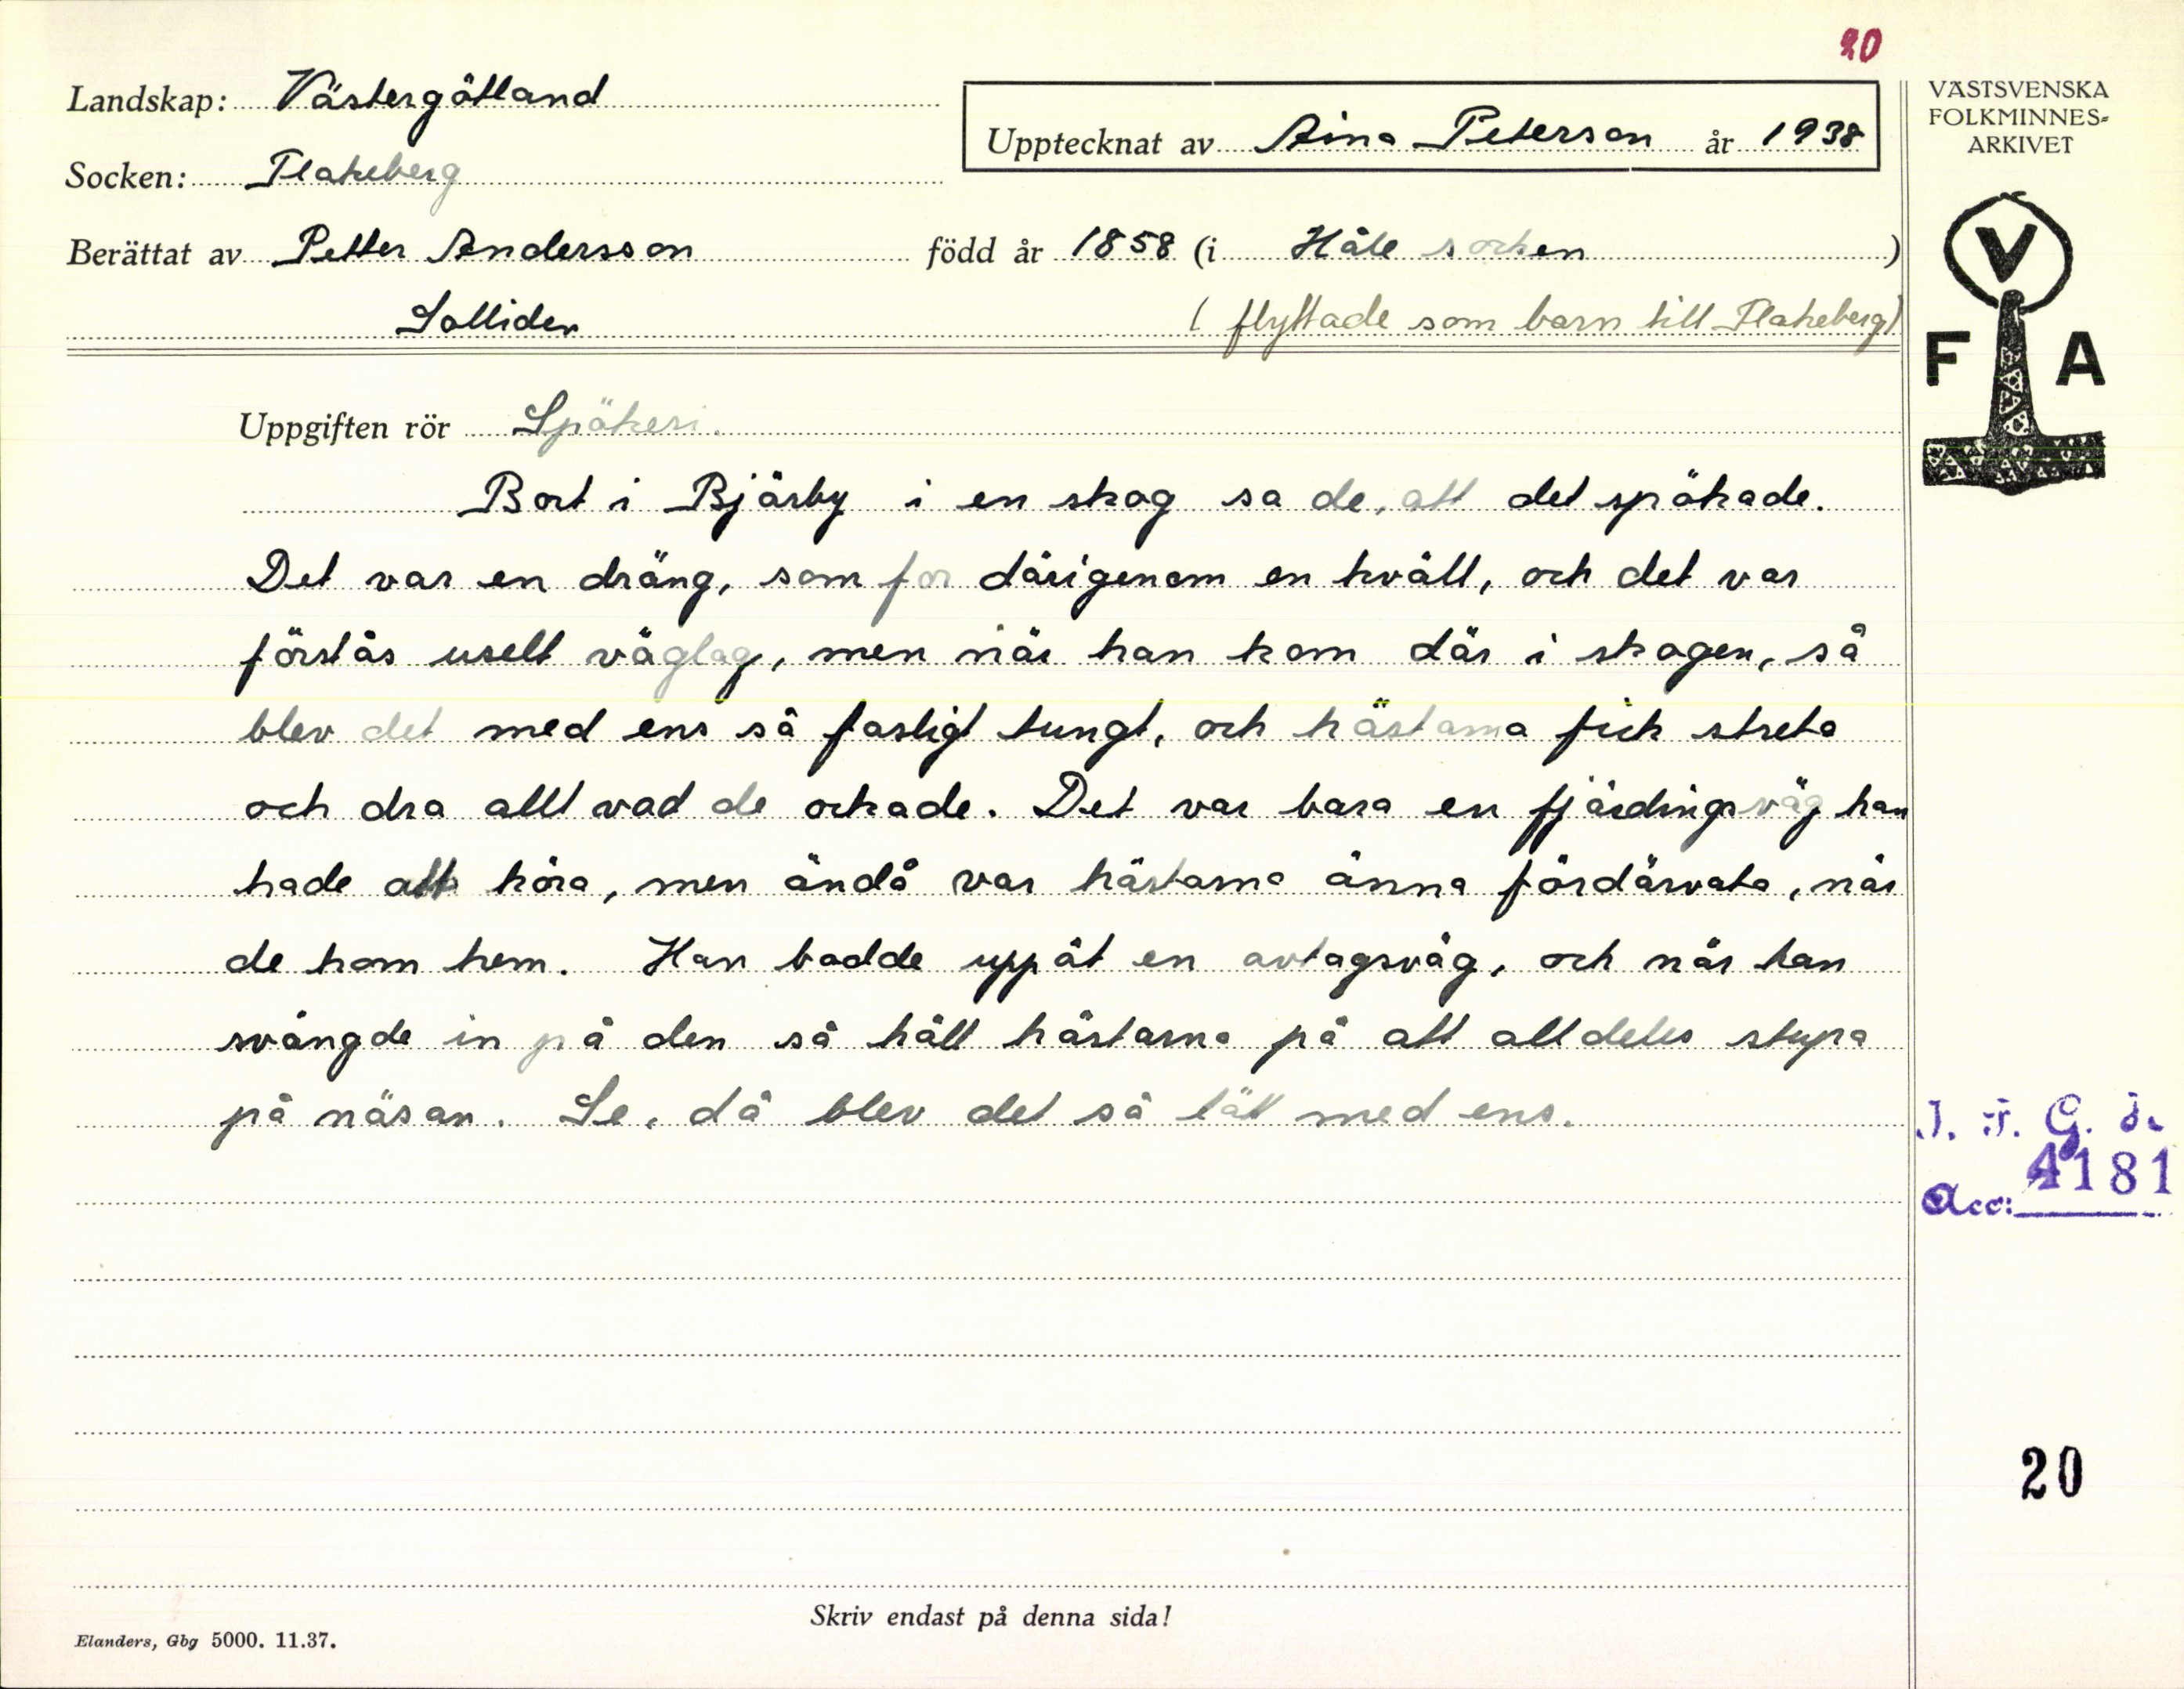 20
Landskap: Västergötland
Upptecknat av Aina Peterson år 1938
VÄSTSVENSKA
FOLKMINNES-
ARKIVET
Socken: Flakeberg
Berättat av Petter Andersson född år 1858 (i Håle socken)
Solliden (flyttade som barn till Flakeberg)
V
F A
Uppgiften rör Spökeri.
Bort i Bjärby i en skog sa de, att det spökade.
Det var en dräng, som for därigenom en kväll, och det var
förstås uselt väglag, men när han kom där i skogen, så
blev det med ens så fasligt tungt, och hästarna fick streta
och dra allt vad de orkade. Det var bara en fjärdingsväg han
hade att köra, men ändå var hästarna änna fördärvata, när
de kom hem. Han bodde uppåt en avtagsväg, och när han
svängde in på den så höll hästarna på att alldeles stupa
på näsan. Se, då blev det så lätt med ens.
I. F. G.
Acc: 4181
20
Skriv endast på denna sida!
Elanders, Gbg 5000. 11.37.